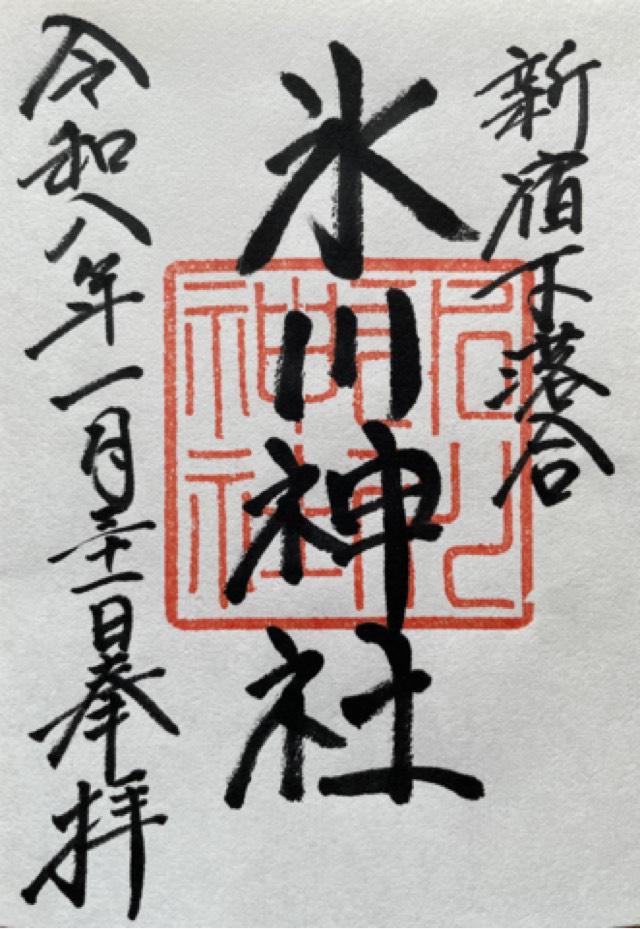 新宿下落合
氷川神社
令和八年一月三十一日奉拝